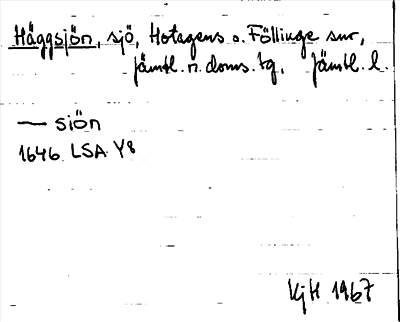 Häggsjön, sjö, Hotagens o. Föllinge snr,
Jämtl. n. doms. tg, Jämtl. l.
— siön
1646 LSA Y8
KjH 1967